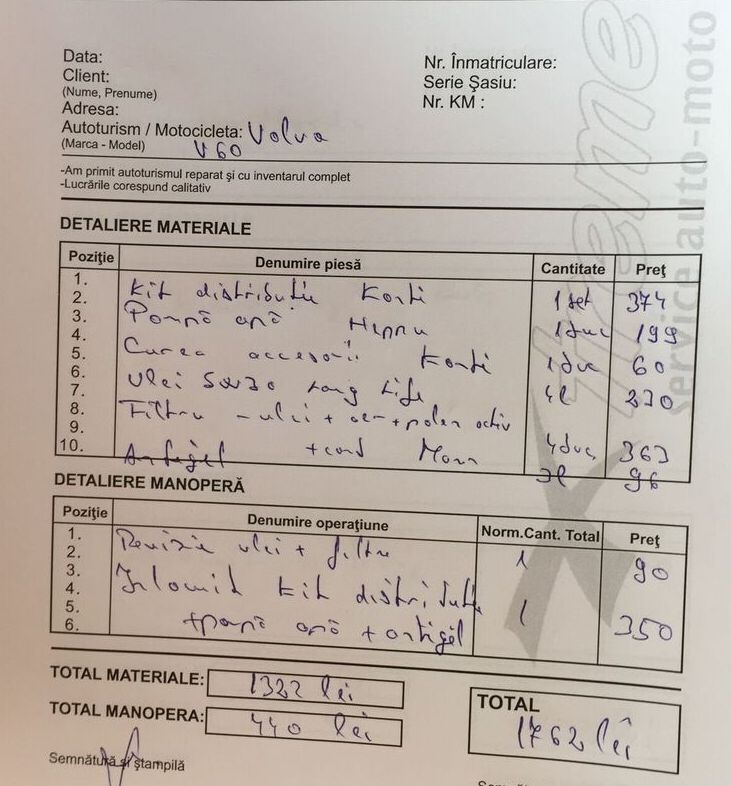 Data:
Nr. Înmatriculare:
Client:
Serie Şasiu:
(Nume, Prenume)
Nr. KM :
Adresa:
Autoturism / Motocicleta: Volvo
(Marca - Model) V60
-Am primit autoturismul reparat şi cu inventarul complet
-Lucrările corespund calitativ
DETALIERE MATERIALE
Poziţie Denumire piesă Cantitate Preţ
1.
2. Kit distributie 1 set 374
3. Pompă apă 199
4.
5. Curea accesorii 60
6.
7. Ulei 5w30 Long Life 4l
8. Filtru - ulei + aer + polen activ
9. + comb Mann 4 buc 363
10. Antigel 3l 96
DETALIERE MANOPERĂ
Poziţie Denumire operaţiune Norm.Cant. Total Preţ
1. Revizie ulei + filtre 1 90
2.
3. Inlocuit kit distributie
4.
5. + pompă apă + antigel 1 350
6.
TOTAL MATERIALE: 1322 lei
TOTAL MANOPERA: 440 lei
TOTAL
1762 lei
Semnătură şi ştampilă
Xtreme
service auto-moto